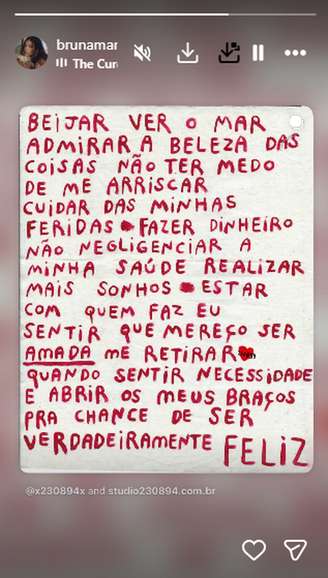 brunamar
The Cur
BEIJAR VER O MAR
ADMIRAR A BELEZA DAS
COISAS NÃO TER MEDO
DE ME ARRISCAR
CUIDAR DAS MINHAS
FERIDAS FAZER DINHEIRO
NÃO NEGLIGENCIAR A
MINHA SAÚDE REALIZAR
MAIS SONHOS ESTAR
COM QUEM FAZ EU
SENTIR QUE MEREÇO SER
AMADA ME RETIRAR
QUANDO SENTIR NECESSIDADE
E ABRIR OS MEUS BRAÇOS
PRA CHANCE DE SER
VERDADEIRAMENTE FELIZ
@x230894x and studio230894.com.br